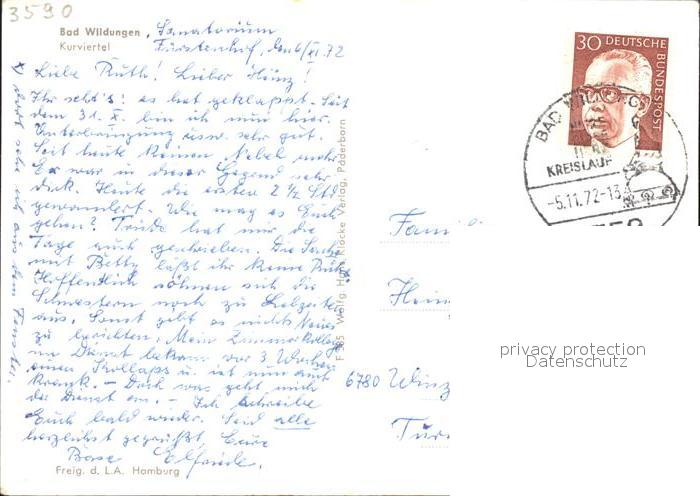 3590
Bad Wildungen, Sanatorium
Kurviertel Fürstenhof, den 6/XI.72
Liebe Ruth! Lieber Heinz!
Ihr seht's: es hat geklappt. Seit
dem 31. X. bin ich nun hier.
Unterbringung usw. sehr gut.
Seit heute keinen Nebel mehr
Er war in dieser Gegend sehr
dick. Heute die ersten 2 1/2 Std
gewandert. Wie mag es Euch
gehen? Trude hat mir die
Tage auch geschrieben. Die Sache
mit Betty läßt ihr keine Ruhe
Hoffentlich söhnen sich die
Schwestern noch zu Lebzeiten
aus. Sonst gibt es nichts Neues
zu berichten. Mein Zimmerkollege
im Dienst bekam vor 3 Wochen
einen Kollaps u. ist nun auch
krank. – Doch was geht mich
der Dienst an. – Ich schreibe
Euch bald wieder. Seid alle
herzlichst gegrüßt, Eure
Base Elfriede.
Freig. d. L.A. Hamburg
x dort sehe ich aus dem Fenster.
Wolfg. Hans Klocke Verlag, Paderborn
30 DEUTSCHE
BUNDESPOST
BAD WILDUNGEN
HERZ
KREISLAUF
-5.11.72-13
Fami
Hein
6780 Winz
Tur
privacy protection
Datenschutz